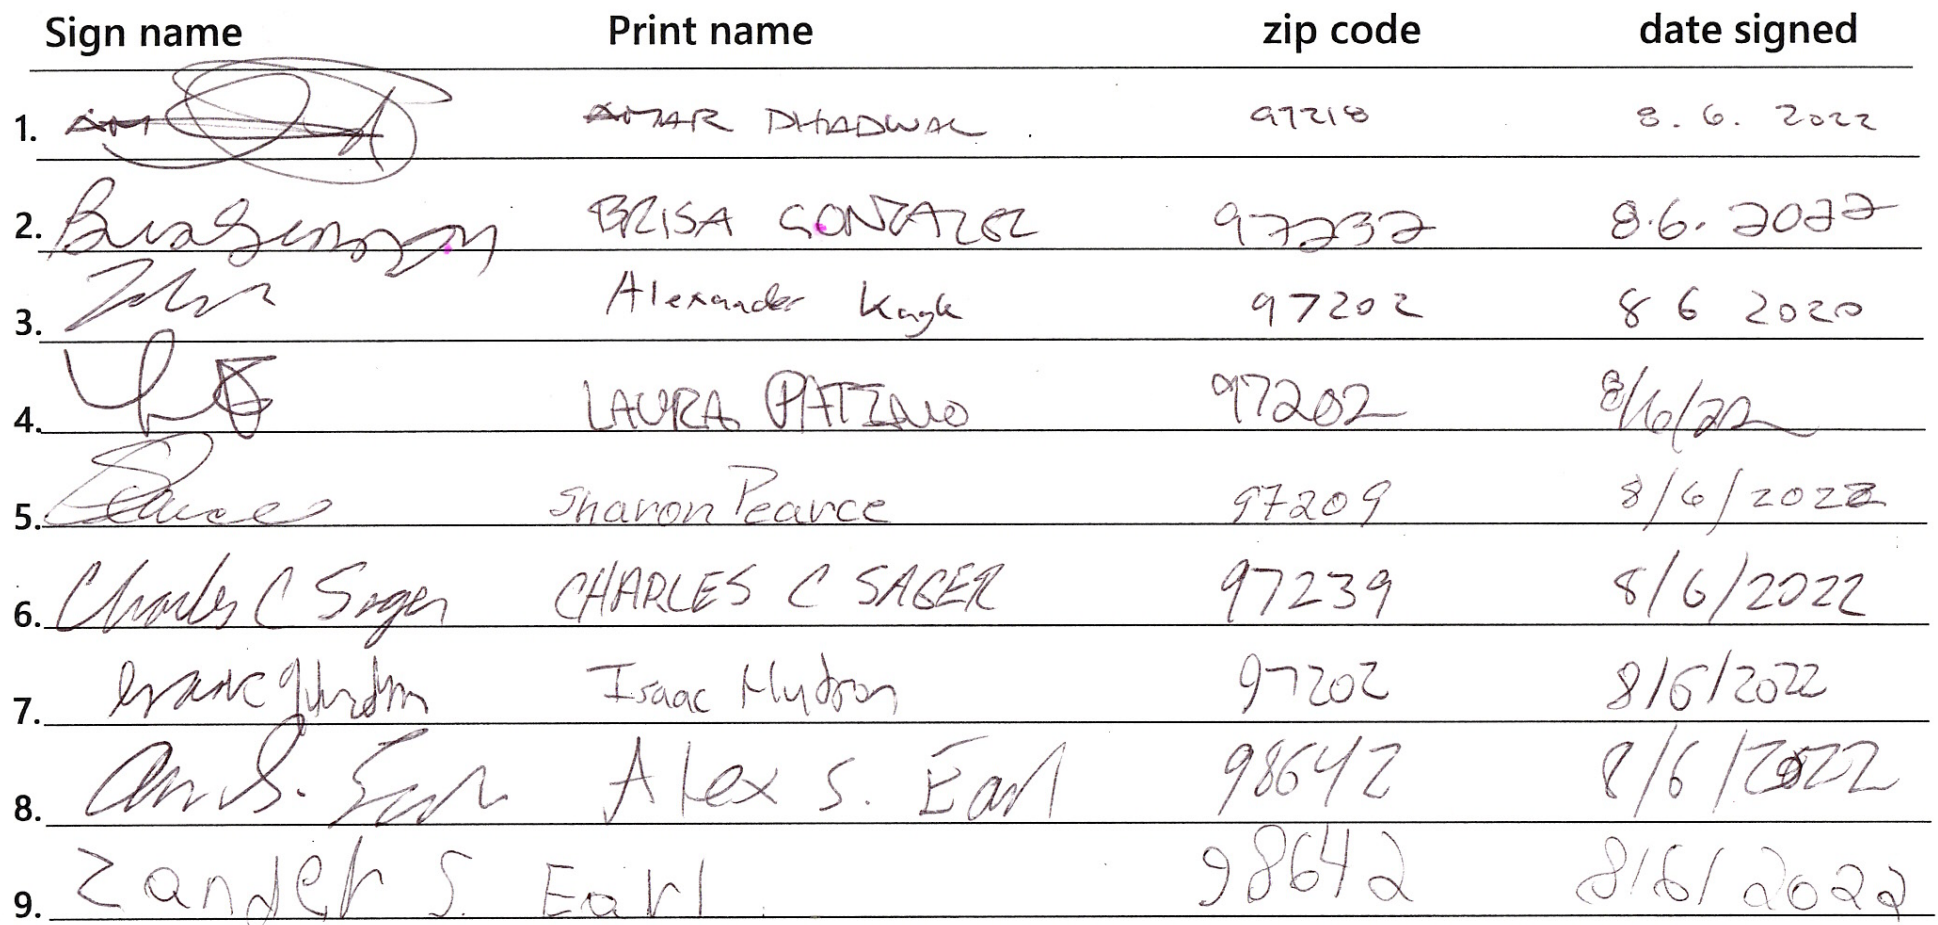 Sign name Print name zip code date signed
1. AMAR DHADWAL 97218 8. 6. 2022
2. BRISA GONZALEZ 97232 8.6. 2022
3. Alexander 97202 8 6 2020
4. LAURA PATINO 97202 8/6/22
5. Pearce Sharon Pearce 97209 8/6/2022
6. Charles C Sager CHARLES C SAGER 97239 8/6/2022
7. Isaac Hudson Isaac Hudson 97202 8/6/2022
8. Alex S. Earl 98642 8/6/2022
9. Zander S. Earl 98642 8/6/2022